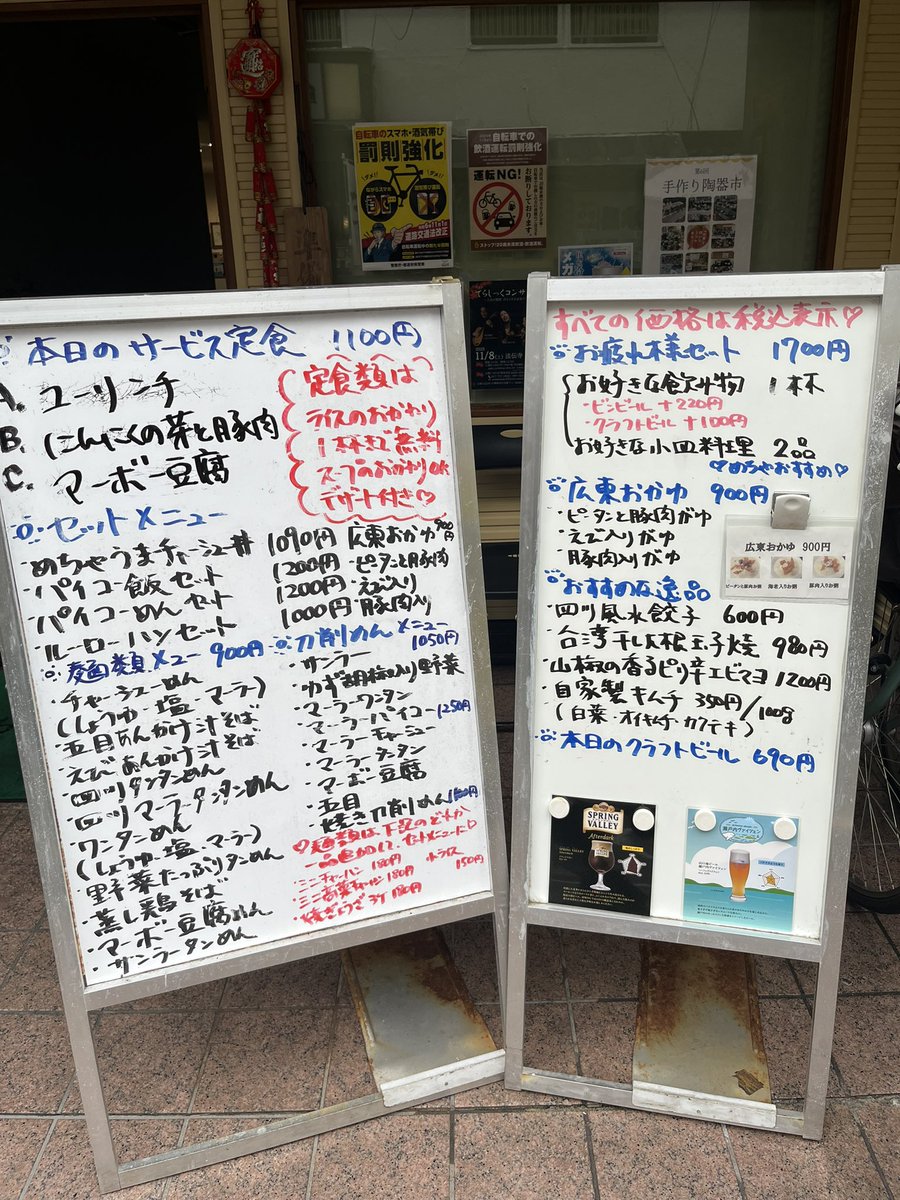 自転車のスマホ・酒気帯び
罰則強化
ダメ!!
ながらスマホ
道路交通法改正
自転車での
飲酒運転罰則強化
運転NG!
お断りしております。
第6回
手作り陶器市
メガ
てらしっくコンサ
11/8(土)
本日のサービス定食 1100円
A. ユーリンチ
B. にんにくの芽と豚肉
C. マーボー豆腐
定食類は
ライスのおかわり
1杯まで無料
スープのおかわりOK
デザート付き♡
セットメニュー
めちゃうまチャーシュー丼 1090円
パイコー飯セット 1200円
パイコーめんセット 1200円
ルーローハンセット 1000円
広東おかゆ 900円
・ピータンと豚肉
・えび入り
・豚肉入り
麺類メニュー 900円
・チャーシューめん
(しょうゆ・塩・マーラー)
・五目あんかけ汁そば
・えびあんかけ汁そば
・四川タンタンめん
・四川マーラータンタンめん
・ワンタンめん
(しょうゆ・塩・マーラー)
・野菜たっぷりタンめん
・蒸し鶏そば
・マーボー豆腐めん
・サンラータンめん
刀削めんメニュー
1050円
・サンラー
・ゆず胡椒入り野菜
・マーラーワンタン
・マーラーパイコー 1250円
・マーラーチャーシュー
・マーラータンタン
・マーボー豆腐
・五目
・焼き刀削めん
♡麺類は下記のどれか
一品追加して、セットメニューに♡
・ミニチャーハン 180円
・ミニ高菜チャーハン 180円
・焼ぎょうざ3ケ 180円
・小ライス 150円
すべての価格は税込表示♡
お疲れ様セット 1700円
お好きな飲み物 1杯
・ビンビール +220円
・クラフトビール +100円
お好きな小皿料理 2品
♡めちゃおすすめ♡
広東おかゆ 900円
・ピータンと豚肉がゆ
・えび入りがゆ
・豚肉入りがゆ
広東おかゆ 900円
ピータンと豚肉お粥
海老入りお粥
豚肉入りお粥
おすすめな逸品
・四川風水餃子 600円
・台湾干し大根玉子焼 980円
・山椒の香るピリ辛エビマヨ 1200円
・自家製キムチ 350円/100g
(白菜・オイキムチ・カクテキ)
本日のクラフトビール 690円
SPRING
VALLEY
Afterdark
瀬戸内ヴァイツェン